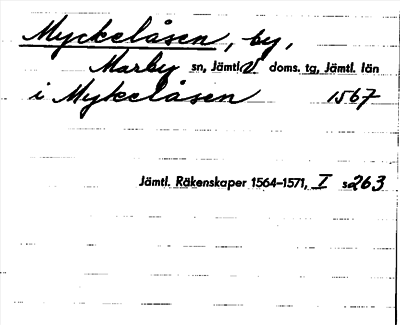 Myckelåsen, by,
Marby sn, Jämtl. V doms. tg, Jämtl. län
i Mykelåsen 1567
Jämtl. Räkenskaper 1564–1571, I s. 263